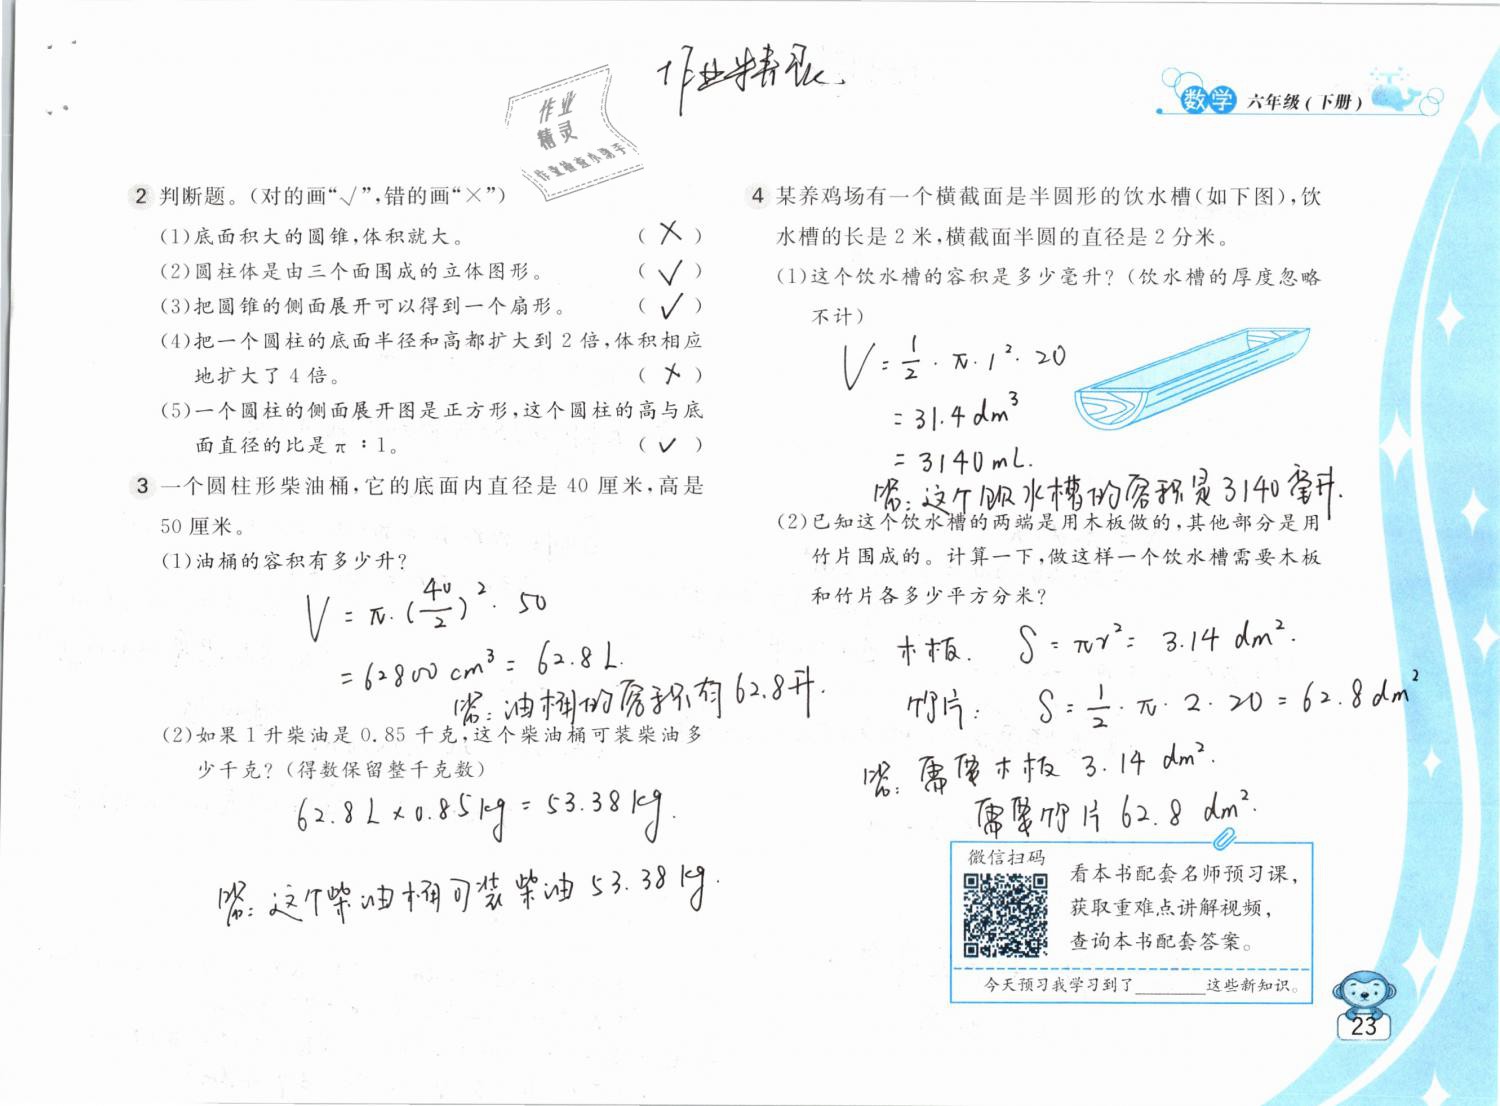 作业精灵
作业
精灵
作业检查小助手
数学 六年级(下册)
2 判断题。(对的画“√”,错的画“×”)
(1)底面积大的圆锥,体积就大。 ( × )
(2)圆柱体是由三个面围成的立体图形。 ( √ )
(3)把圆锥的侧面展开可以得到一个扇形。 ( √ )
(4)把一个圆柱的底面半径和高都扩大到 2 倍,体积相应
地扩大了 4 倍。 ( × )
(5)一个圆柱的侧面展开图是正方形,这个圆柱的高与底
面直径的比是 π : 1。 ( √ )
3 一个圆柱形柴油桶,它的底面内直径是 40 厘米,高是
50 厘米。
(1)油桶的容积有多少升?
V = π·(40/2)²·50
= 62800 cm³ = 62.8 L.
答:油桶的容积有62.8升.
(2)如果 1 升柴油是 0.85 千克,这个柴油桶可装柴油多
少千克?(得数保留整千克数)
62.8 L × 0.85 kg = 53.38 kg.
答:这个柴油桶可装柴油 53.38 kg.
4 某养鸡场有一个横截面是半圆形的饮水槽(如下图),饮
水槽的长是 2 米,横截面半圆的直径是 2 分米。
(1)这个饮水槽的容积是多少毫升?(饮水槽的厚度忽略
不计)
V = 1/2·π·1²·20
= 31.4 dm³
= 3140 mL.
答:这个饮水槽的容积是3140毫升.
(2)已知这个饮水槽的两端是用木板做的,其他部分是用
竹片围成的。计算一下,做这样一个饮水槽需要木板
和竹片各多少平方分米?
木板. S = πr² = 3.14 dm².
竹片: S = 1/2·π·2·20 = 62.8 dm²
答:需要木板 3.14 dm².
需要竹片 62.8 dm².
微信扫码
看本书配套名师预习课,
获取重难点讲解视频,
查询本书配套答案。
今天预习我学习到了______这些新知识。
23